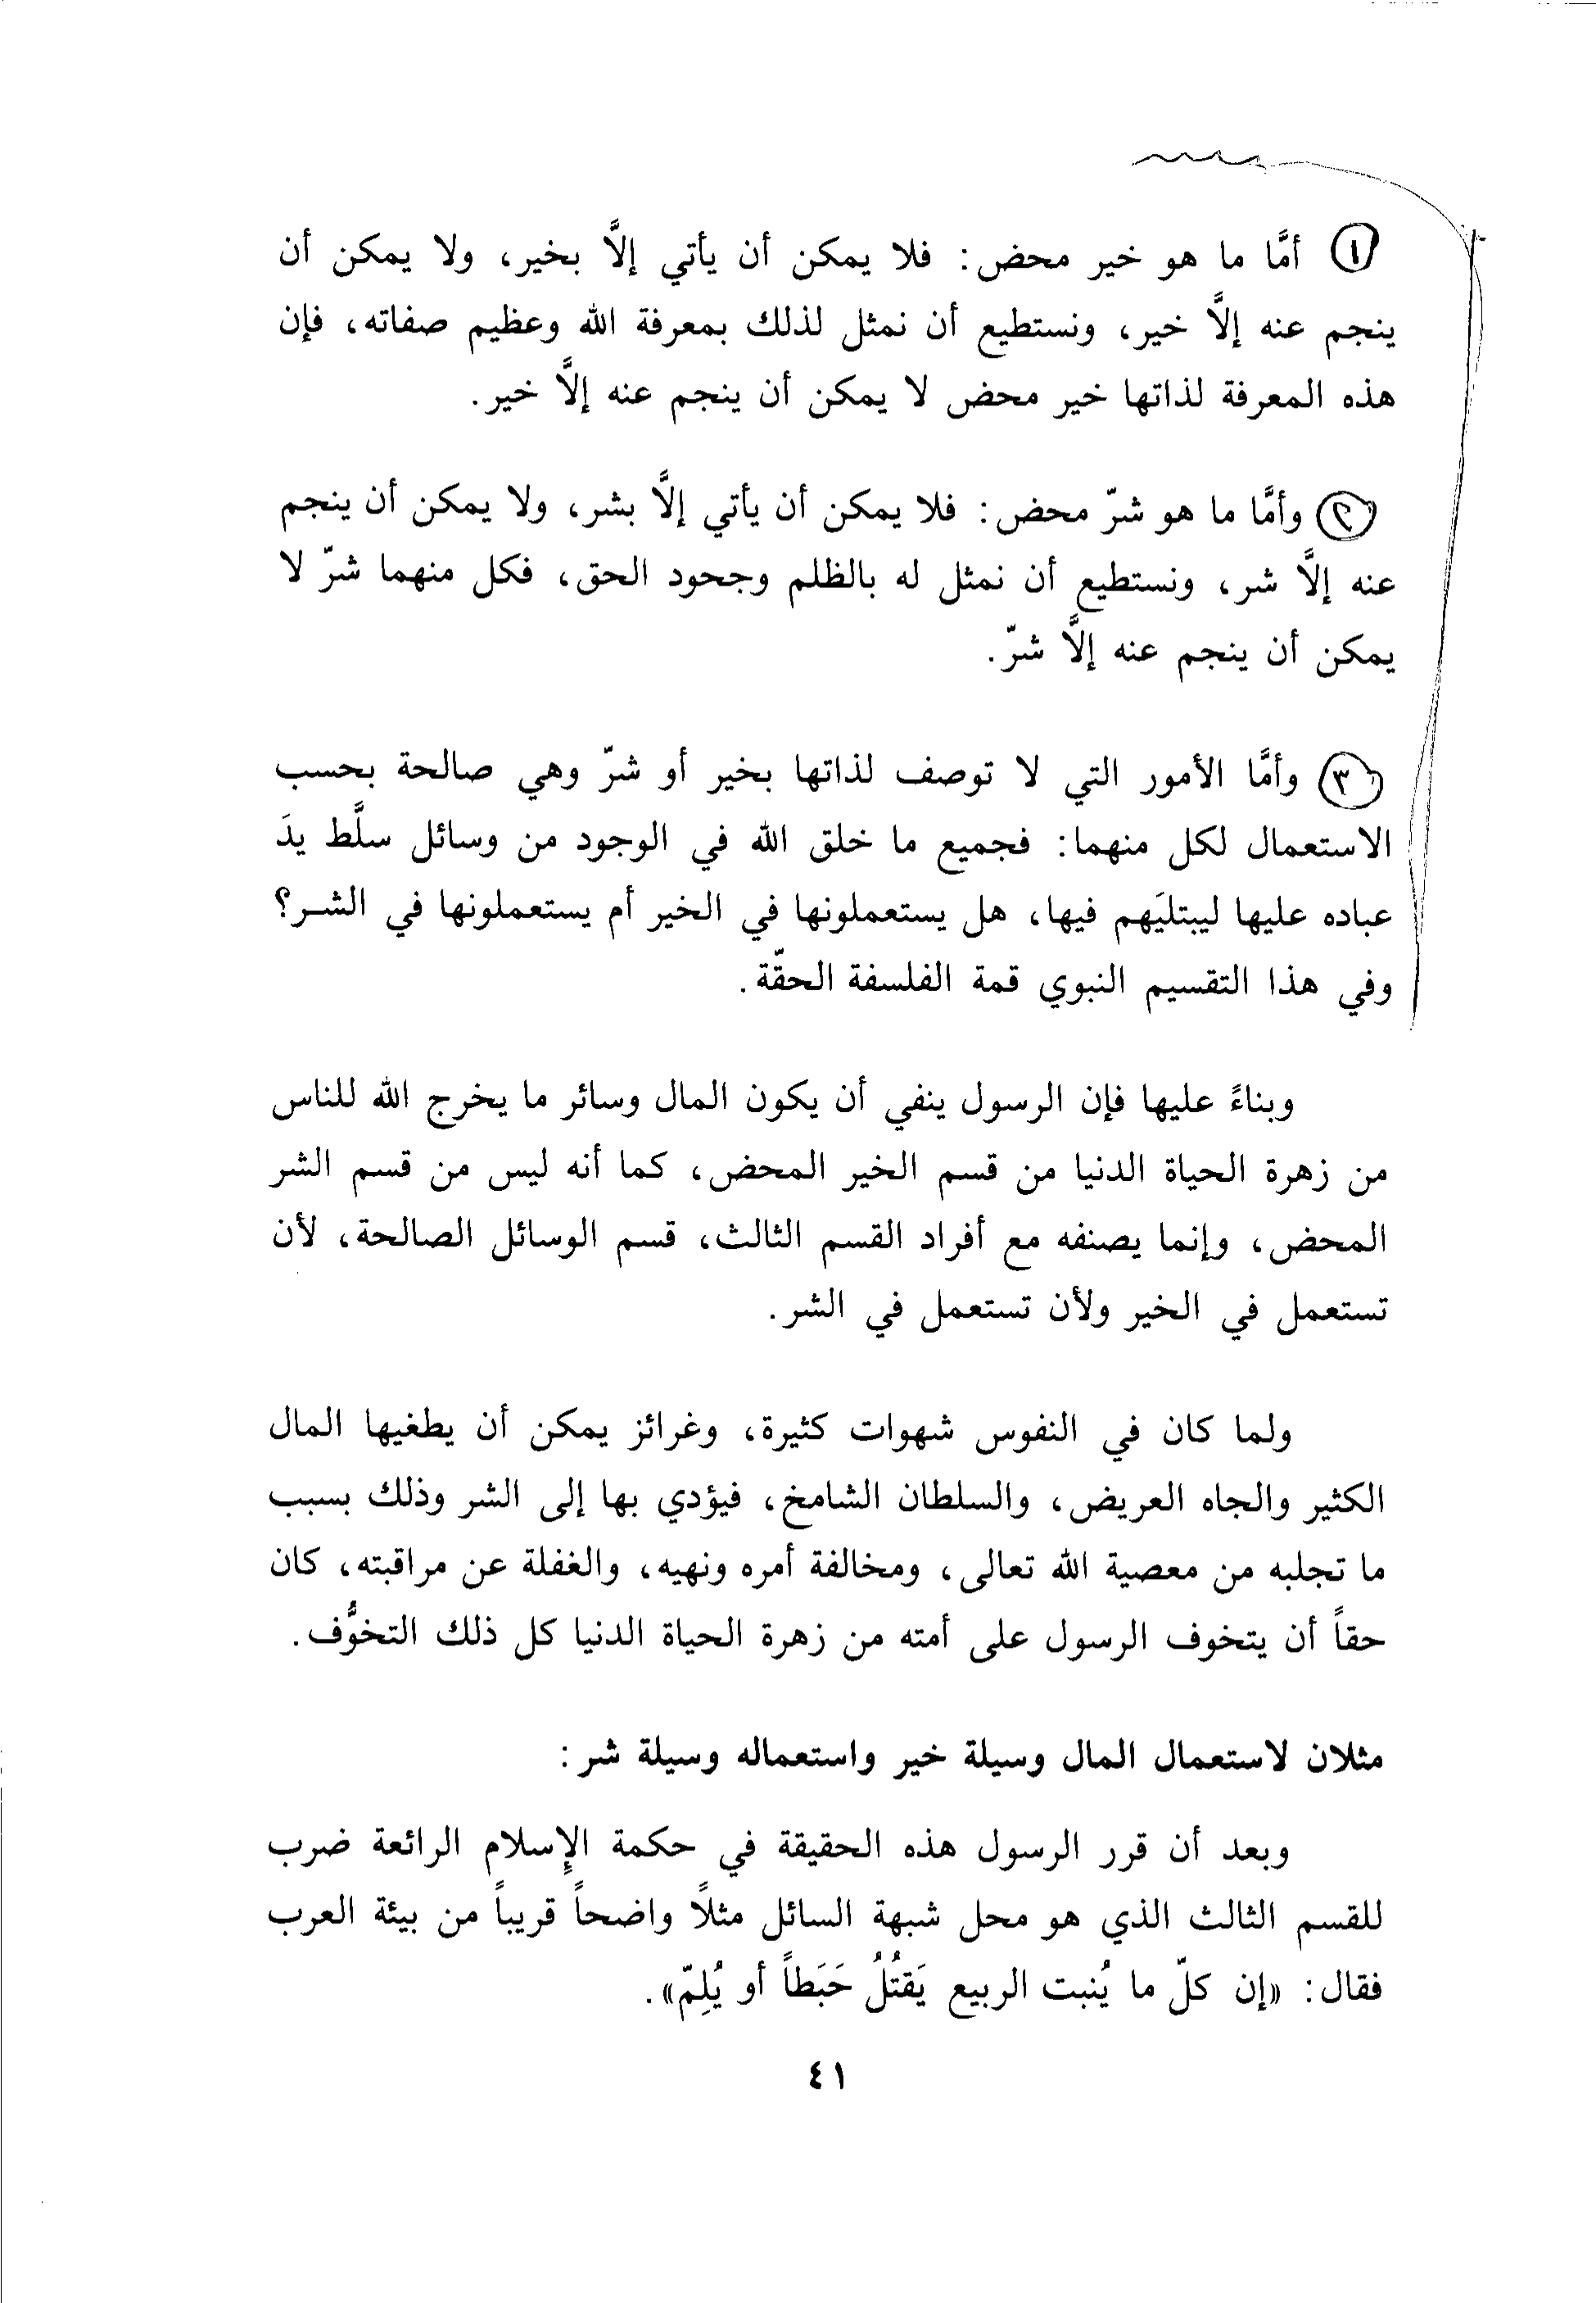 ١ أمَّا ما هو خير محض: فلا يمكن أن يأتي إلاَّ بخير، ولا يمكن أن
ينجم عنه إلاَّ خير، ونستطيع أن نمثل لذلك بمعرفة الله وعظيم صفاته، فإن
هذه المعرفة لذاتها خير محض لا يمكن أن ينجم عنه إلاَّ خير.
٢ وأمَّا ما هو شرّ محض: فلا يمكن أن يأتي إلاَّ بشر، ولا يمكن أن ينجم
عنه إلاَّ شر، ونستطيع أن نمثل له بالظلم وجحود الحق، فكل منهما شرّ لا
يمكن أن ينجم عنه إلاَّ شرّ.
٣ وأمَّا الأمور التي لا توصف لذاتها بخير أو شرّ وهي صالحة بحسب
الاستعمال لكل منهما: فجميع ما خلق الله في الوجود من وسائل سلَّط يدَ
عباده عليها ليبتليَهم فيها، هل يستعملونها في الخير أم يستعملونها في الشـر؟
وفي هذا التقسيم النبوي قمة الفلسفة الحقّة.
وبناءً عليها فإن الرسول ينفي أن يكون المال وسائر ما يخرج الله للناس
من زهرة الحياة الدنيا من قسم الخير المحض، كما أنه ليس من قسم الشر
المحض، وإنما يصنفه مع أفراد القسم الثالث، قسم الوسائل الصالحة، لأن
تستعمل في الخير ولأن تستعمل في الشر.
ولما كان في النفوس شهوات كثيرة، وغرائز يمكن أن يطغيها المال
الكثير والجاه العريض، والسلطان الشامخ، فيؤدي بها إلى الشر وذلك بسبب
ما تجلبه من معصية الله تعالى، ومخالفة أمره ونهيه، والغفلة عن مراقبته، كان
حقاً أن يتخوف الرسول على أمته من زهرة الحياة الدنيا كل ذلك التخوُّف.
مثلان لاستعمال المال وسيلة خير واستعماله وسيلة شر:
وبعد أن قرر الرسول هذه الحقيقة في حكمة الإِسلام الرائعة ضرب
للقسم الثالث الذي هو محل شبهة السائل مثلاً واضحاً قريباً من بيئة العرب
فقال: «إن كلّ ما يُنبت الربيع يَقتُلُ حَبَطاً أو يُلِمّ».
٤١